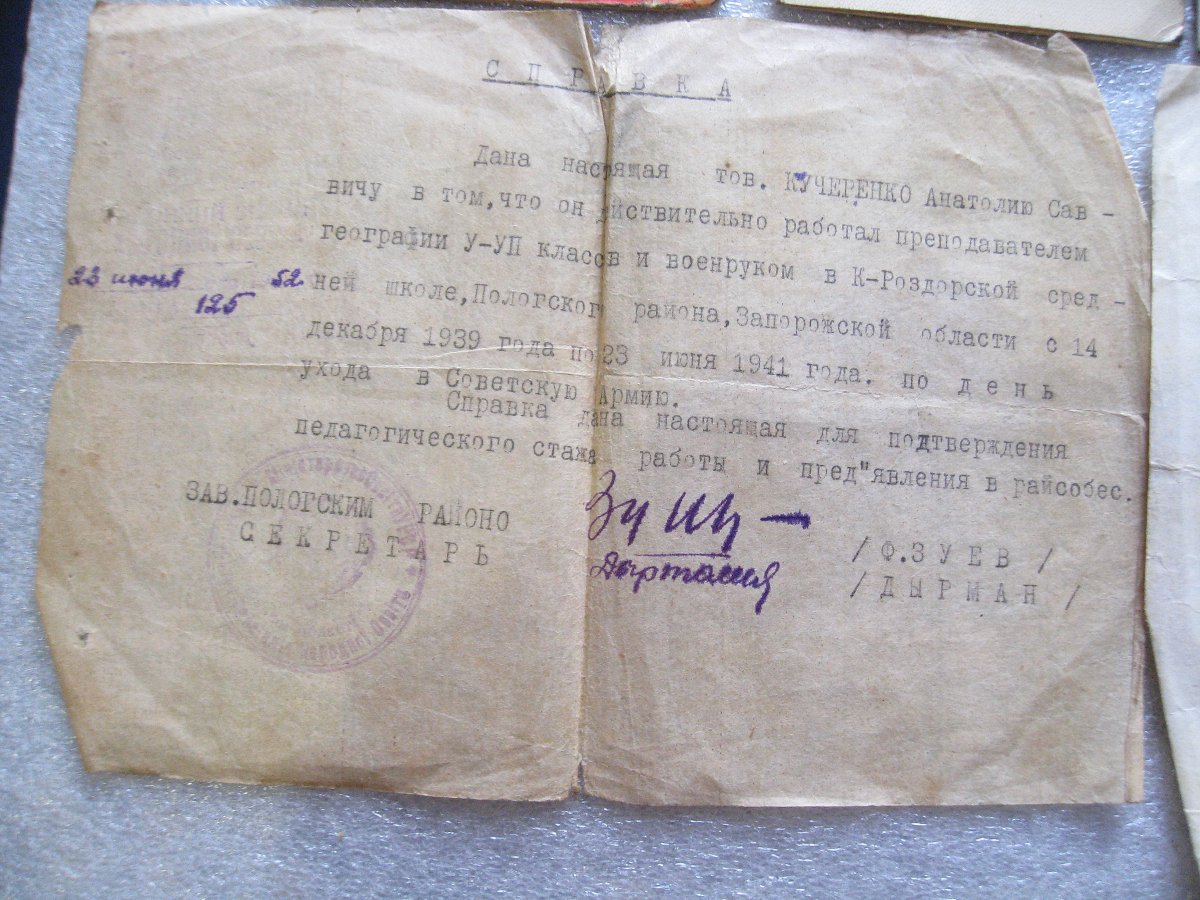 СПРАВКА
Дана настоящая тов. КУЧЕРЕНКО Анатолию Сав -
вичу в том, что он действительно работал преподавателем
географии У-УП классов и военруком в К-Роздорской сред -
23 июня 52
125
ней школе, Пологского района, Запорожской области с 14
декабря 1939 года по 23 июня 1941 года. по день
ухода в Советскую Армию.
Справка дана настоящая для подтверждения
педагогического стажа работы и пред"явления в райсобес.
ЗАВ.ПОЛОГСКИМ РАЙОНО
/ Ф.ЗУЕВ /
СЕКРЕТАРЬ
/ ДЫРМАН /